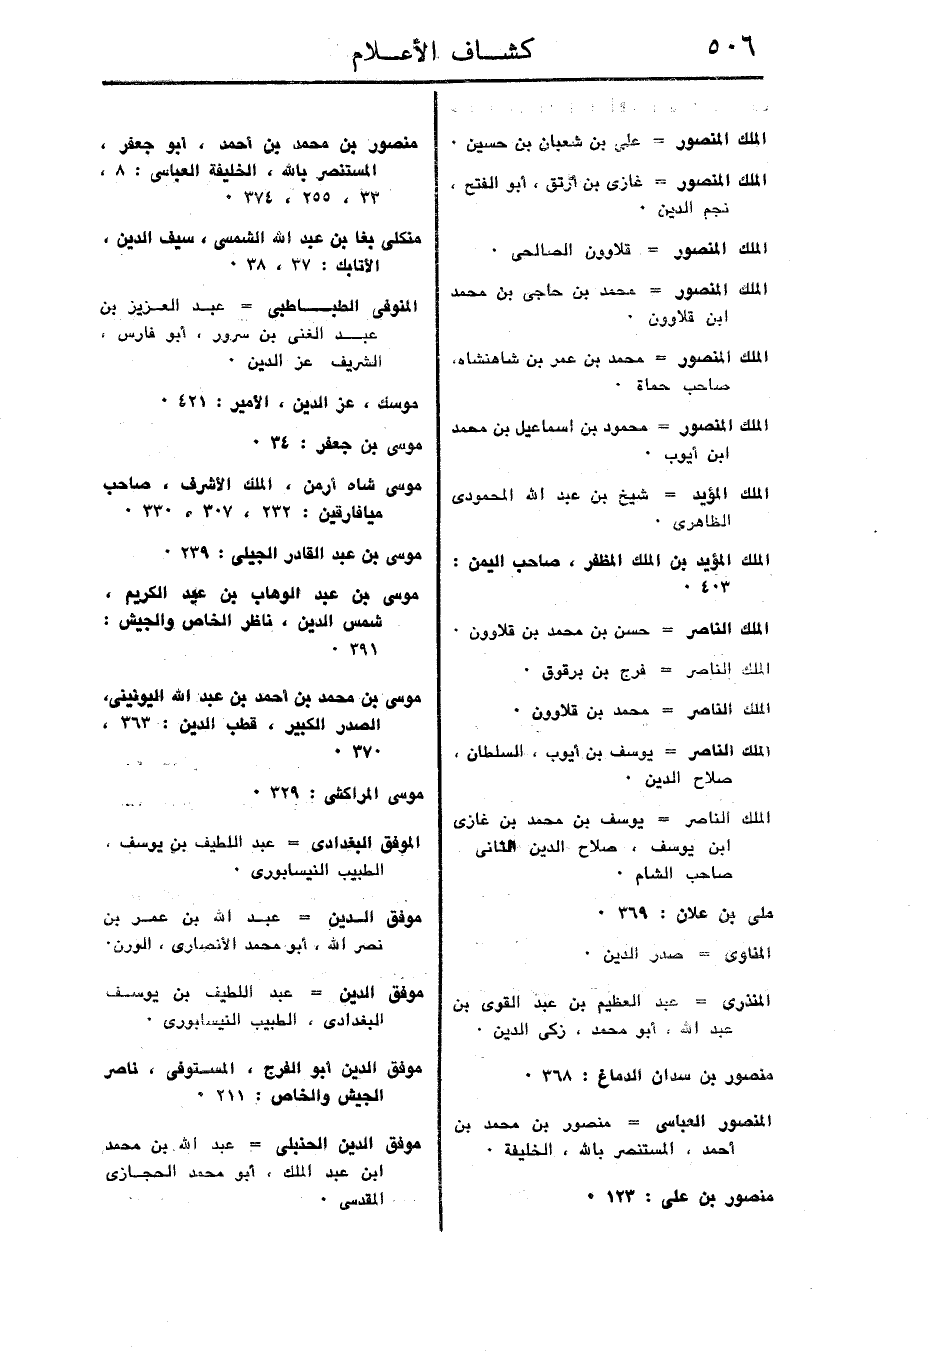 ٥٠٦
كشاف الأعلام
الملك المنصور = علي بن شعبان بن حسين ٠
الملك المنصور = غازى بن أرتق ، أبو الفتح ،
نجم الدين ٠
الملك المنصور = قلاوون الصالحى ٠
الملك المنصور = محمد بن حاجى بن محمد
ابن قلاوون ٠
الملك المنصور = محمد بن عمر بن شاهنشاه،
صاحب حماة ٠
الملك المنصور = محمود بن اسماعيل بن محمد
ابن أيوب ٠
الملك المؤيد = شيخ بن عبد الله المحمودى
الظاهرى ٠
الملك المؤيد بن الملك المظفر ، صاحب اليمن :
٤٠٣ ٠
الملك الناصر = حسن بن محمد بن قلاوون ٠
الملك الناصر = فرج بن برقوق ٠
الملك الناصر = محمد بن قلاوون ٠
الملك الناصر = يوسف بن أيوب ، السلطان ،
صلاح الدين ٠
الملك الناصر = يوسف بن محمد بن غازى
ابن يوسف ، صلاح الدين الثانى
صاحب الشام ٠
ملى بن علان : ٣٦٩ ٠
المناوى = صدر الدين ٠
المنذرى = عبد العظيم بن عبد القوى بن
عبد الله ، أبو محمد ، زكى الدين ٠
منصور بن سدان الدماغ : ٣٦٨ ٠
المنصور العباسى = منصور بن محمد بن
أحمد ، المستنصر بالله ، الخليفة ٠
منصور بن على : ١٢٣ ٠
منصور بن محمد بن أحمد ، أبو جعفر ،
المستنصر بالله ، الخليفة العباسى : ٨ ،
٣٣ ، ٢٥٥ ، ٣٧٤ ٠
منكلى بغا بن عبد الله الشمسى ، سيف الدين ،
الأتابك : ٣٧ ، ٣٨ ٠
المنوفى الطباطبى = عبد العزيز بن
عبد الغنى بن سرور ، أبو فارس ،
الشريف عز الدين ٠
موسك ، عز الدين ، الأمير : ٤٢١ ٠
موسى بن جعفر : ٣٤ ٠
موسى شاه أرمن ، الملك الأشرف ، صاحب
ميافارقين : ٢٣٢ ، ٣٠٧ ، ٣٣٠ ٠
موسى بن عبد القادر الجيلى : ٢٣٩ ٠
موسى بن عبد الوهاب بن عبد الكريم ،
شمس الدين ، ناظر الخاص والجيش :
٣٩١ ٠
موسى بن محمد بن أحمد بن عبد الله اليونينى،
الصدر الكبير ، قطب الدين : ٣٦٣ ،
٣٧٠ ٠
موسى المراكشى : ٣٢٩ ٠
الموفق البغدادى = عبد اللطيف بن يوسف ،
الطبيب النيسابورى ٠
موفق الدين = عبد الله بن عمر بن
نصر الله ، أبو محمد الأنصارى ، الورن٠
موفق الدين = عبد اللطيف بن يوسف
البغدادى ، الطبيب النيسابورى ٠
موفق الدين أبو الفرج ، المستوفى ، ناصر
الجيش والخاص : ٢١١ ٠
موفق الدين الحنبلى = عبد الله بن محمد
ابن عبد الملك ، أبو محمد الحجازى
المقدسى ٠